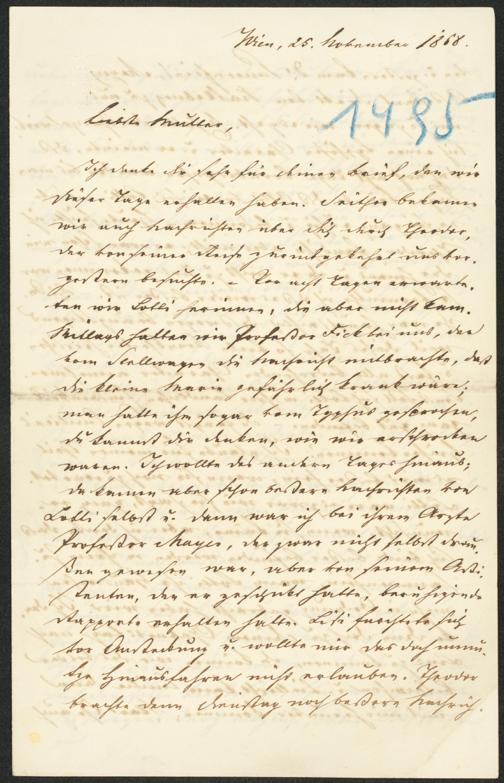 Wien, 25. November 1868.
1495
Liebste Mutter,
Ich danke dir sehr für deinen Brief, den wir
dieser Tage erhalten haben. Seither bekamen
wir auch Nachrichten über dich durch Theodor,
der von seiner Reise zurückgekehrt uns vor-
gestern besuchte. – Vor acht Tagen erwarte-
ten wir Lolli herinnen, die aber nicht kam.
Mittags hatten wir Professor Fick bei uns, der
vom Stellwagen die Nachricht mitbrachte, daß
die kleine Marie gefährlich krank wäre;
man hatte ihm sogar vom Typhus gesprochen,
du kannst dir denken, wie wir erschrocken
waren. Ich wollte des andern Tages hinaus;
da kamen aber schon bessere Nachrichten von
Lolli selbst u. dann war ich bei ihrem Arzte
Professor Mayer, der zwar nicht selbst drau-
ßen gewesen war, aber von seinem Assi-
stenten, der er geschickt hatte, beruhigende
Rapporte erhalten hatte. Lisi fürchtete sich
vor Ansteckung u. wollte mir das doch unnü-
tze Hinausfahren nicht erlauben. Theodor
brachte dann Dienstag noch bessere Nachrich-